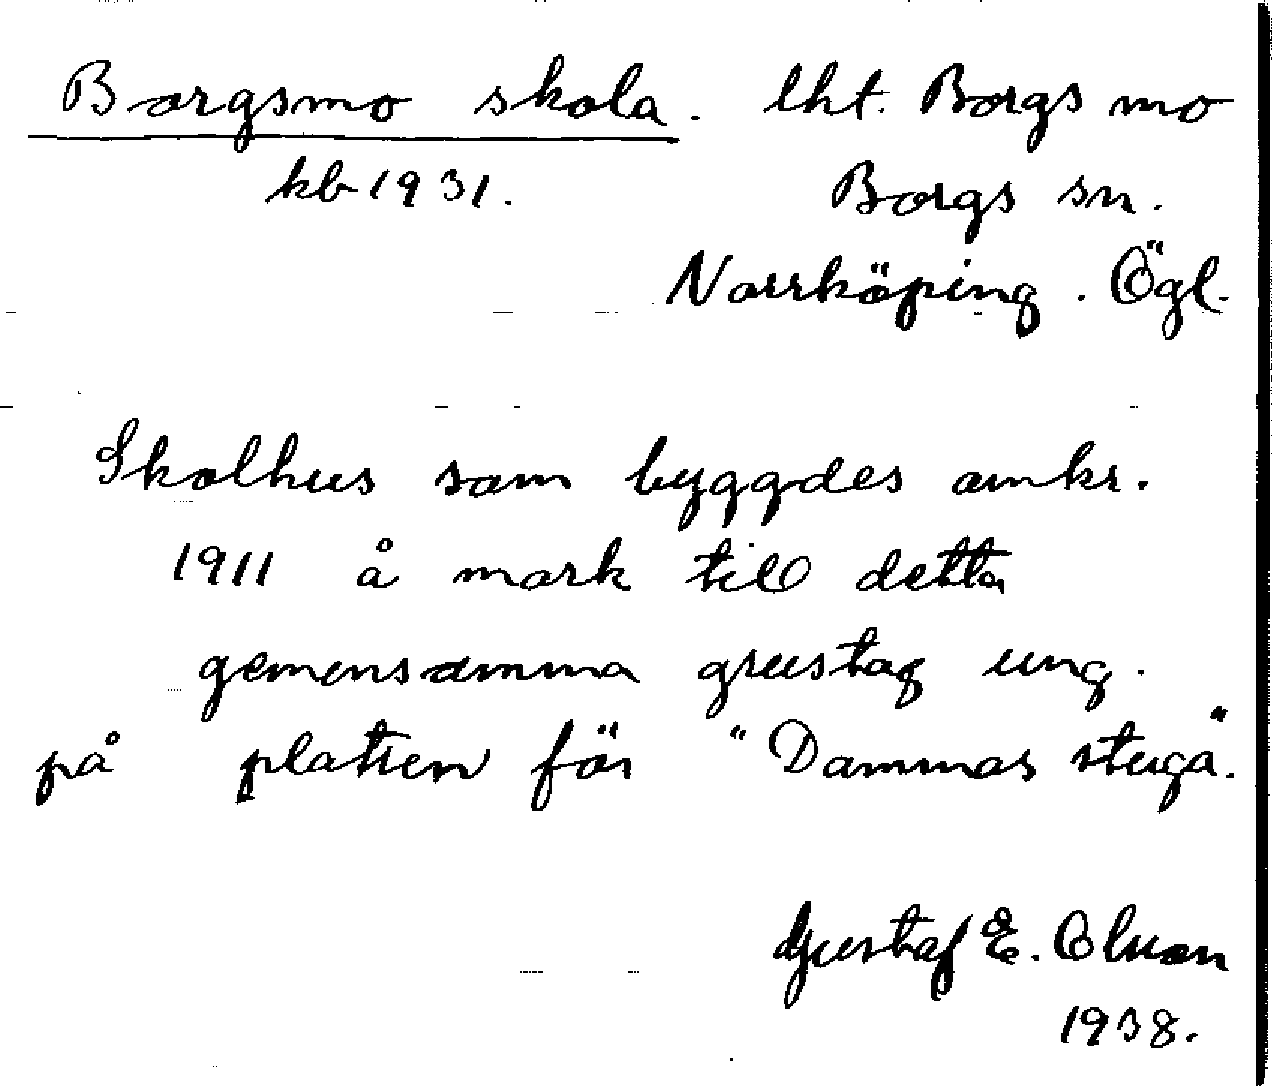 Borgsmo skola. lht. Borgs mo
kb 1931. Borgs sn.
Norrköping. Ögl.
Skolhus som byggdes omkr.
1911 å mark till detta
gemensamma grustag ung.
på platsen för "Dammas stuga".
Gustaf E. Olsson
1938.